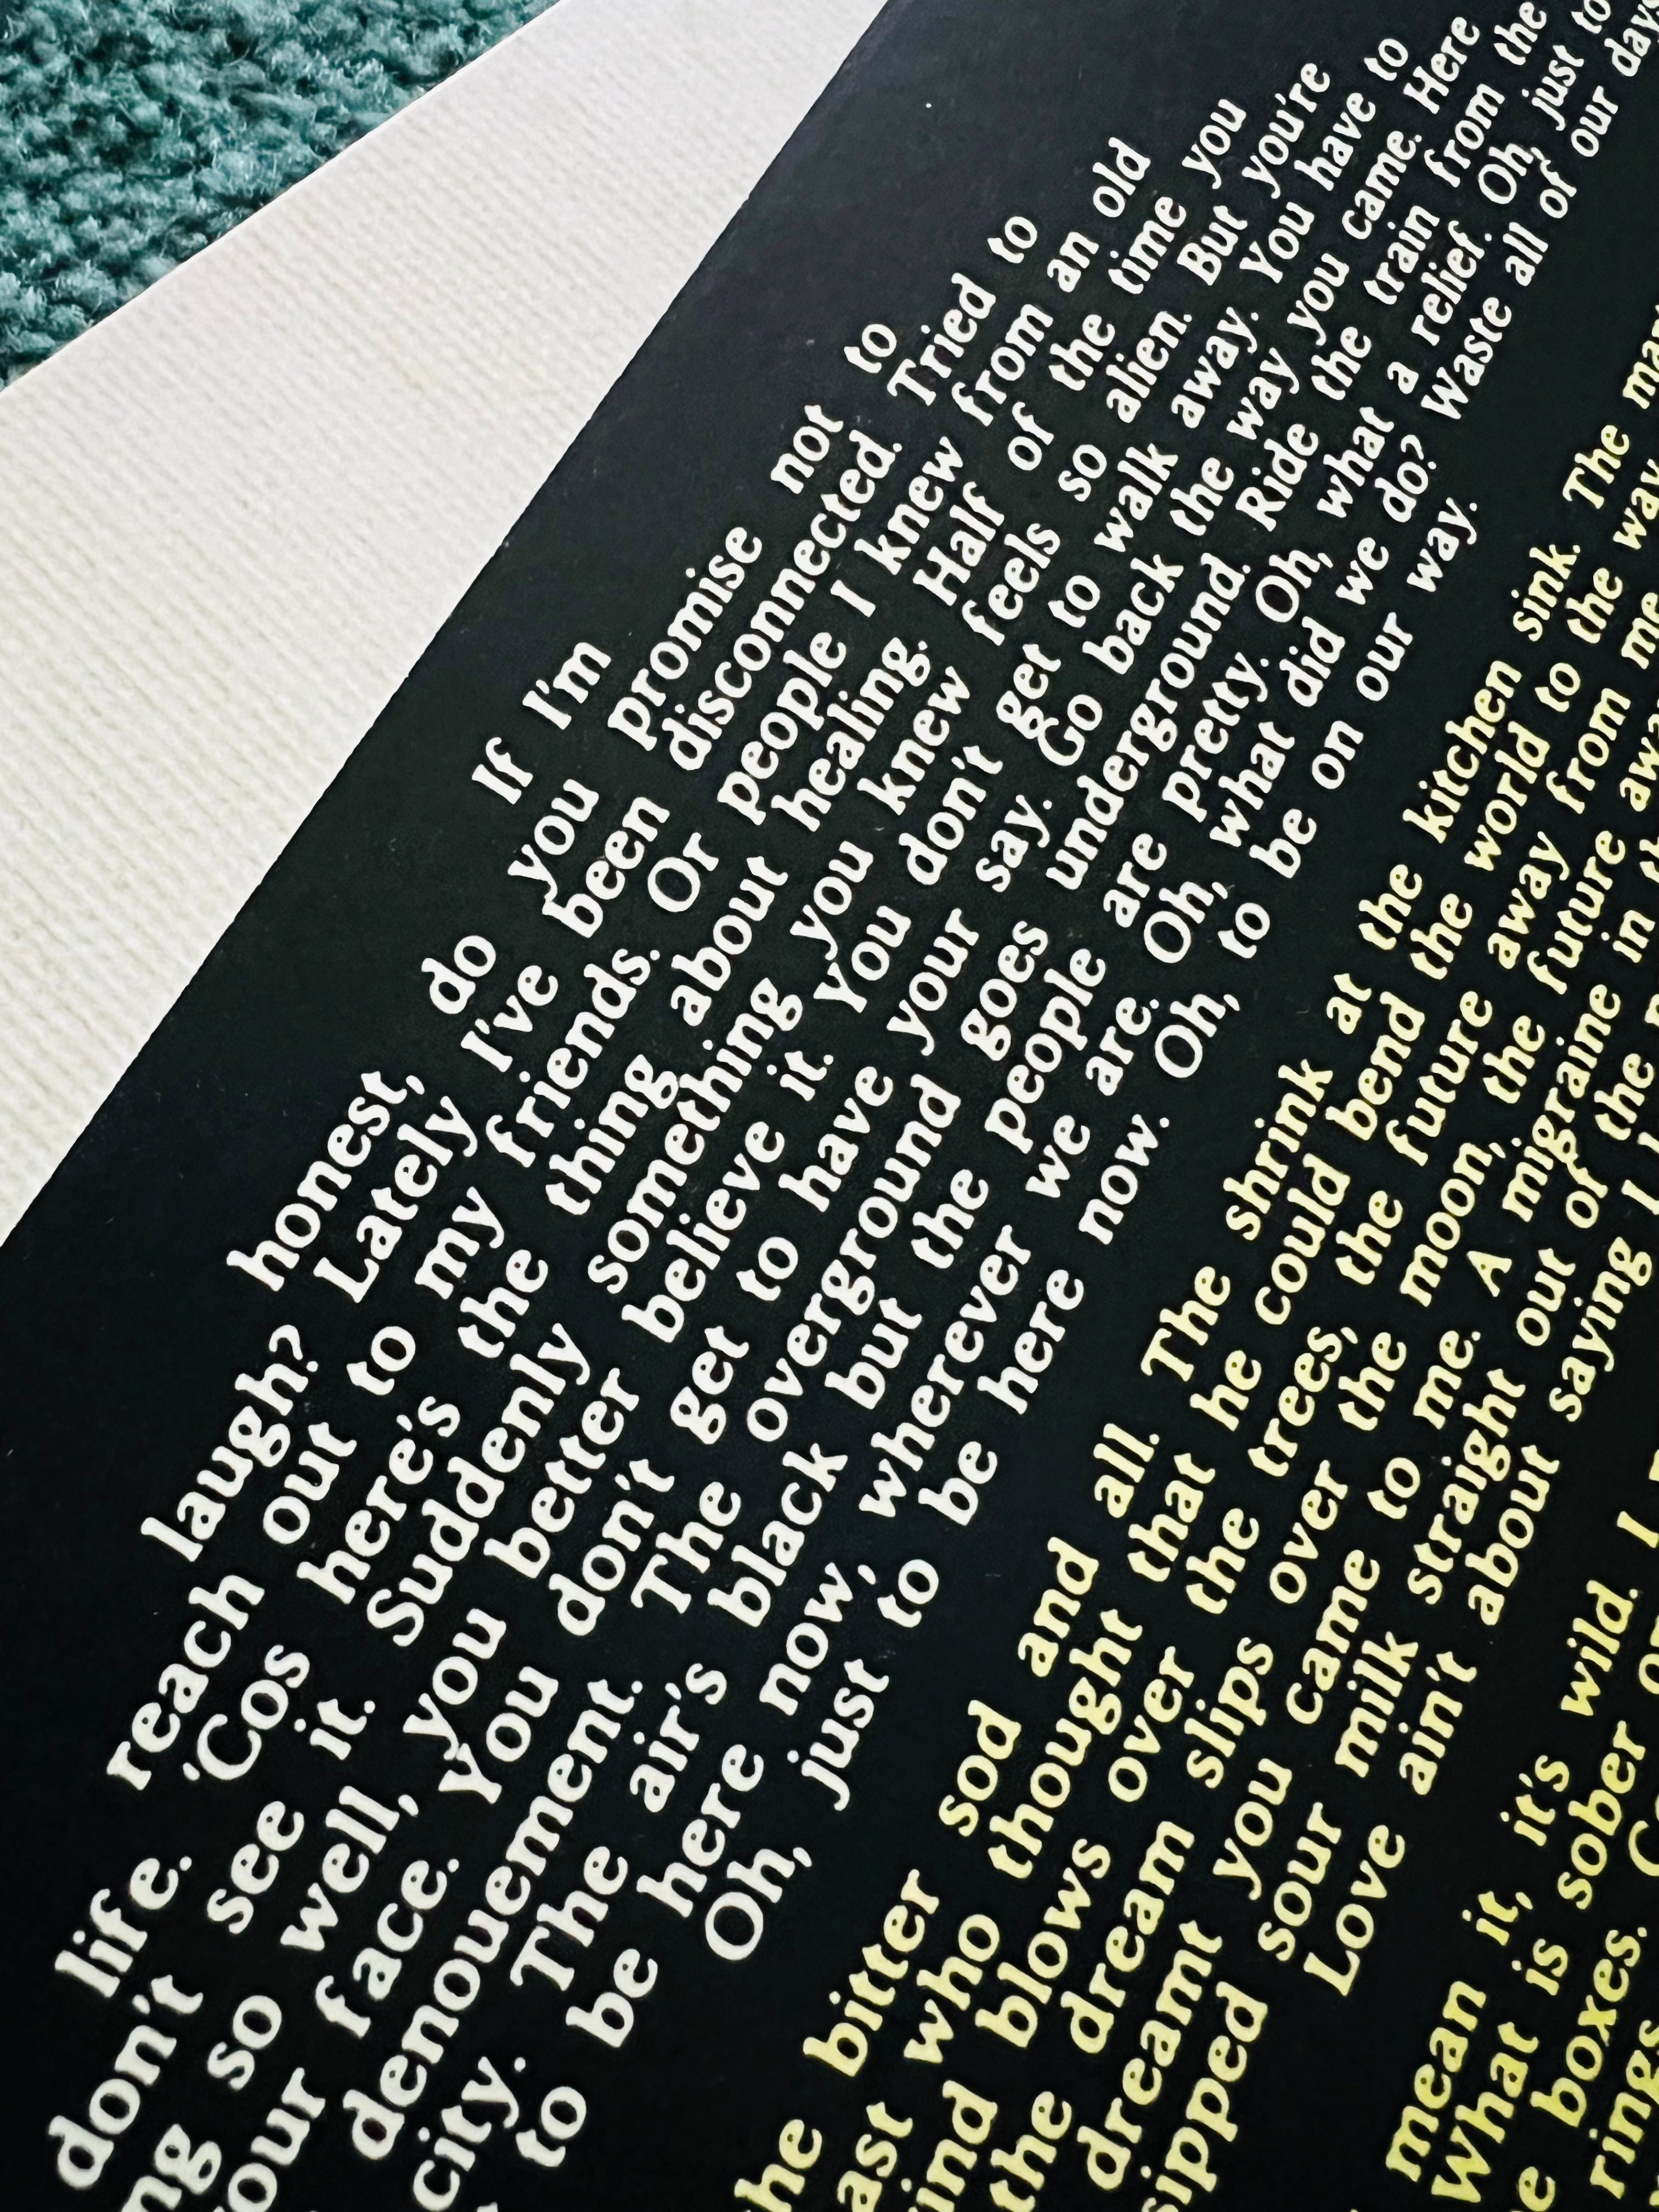 If I'm
honest, do you promise not to
laugh? Lately I've been disconnected. Tried to
reach out to my friends. Or people I knew from an old
life. 'Cos here's the thing about healing. Half of the time you
don't see it. Suddenly something you knew feels so alien. But you're
ng so well, you better believe it. You don't get to walk away. You have to
our face. You don't get to have your say. Go back the way you came. Here
denouement. The overground goes underground. Ride the train from the
city. The air's black but the people are pretty. Oh, what a relief. Oh, just to
to be here now, wherever we are. Oh, what did we do? Waste all of our days
Oh, just to be here now. Oh, to be on our way.
he bitter sod and all. The shrink at the kitchen sink. The man
ast who thought that he could bend the world to the way
ind blows over the trees, the future away from me
the dream slips over the moon, the future awa
dreamt you came to me. A migraine in th
sipped sour milk straight out of the
Love ain't about saying I
mean it, it's wild. I
What is sober
boxes.
rings